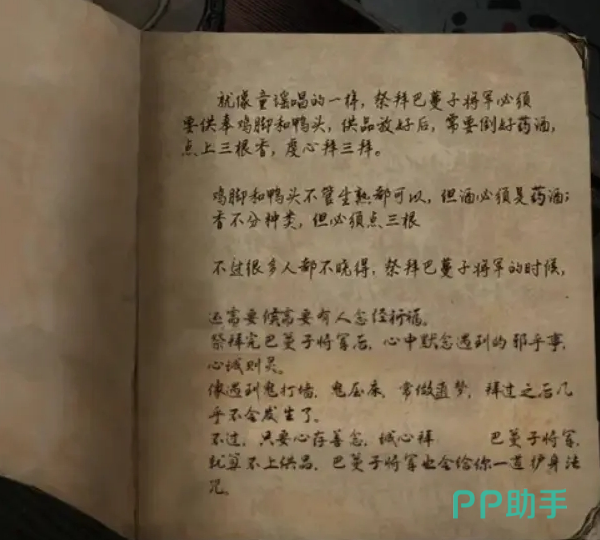 就像童谣唱的一样，祭拜巴蔓子将军必须
要供奉鸡脚和鸭头，供品放好后，需要倒好药酒，
点上三根香，虔心拜三拜。
鸡脚和鸭头不管生熟都可以，但酒必须是药酒；
香不分种类，但必须点三根
不过很多人都不晓得，祭拜巴蔓子将军的时候，
还需要候需要有人念经祈福。
祭拜完巴蔓子将军后，心中默念遇到的邪乎事，
心诚则灵。
像遇到鬼打墙，鬼压床，常做噩梦，拜过之后几
乎不会发生了。
不过，只要心存善念，诚心拜 巴蔓子将军，
就算不上供品，巴蔓子将军也会给你一道护身法
咒。
PP助手